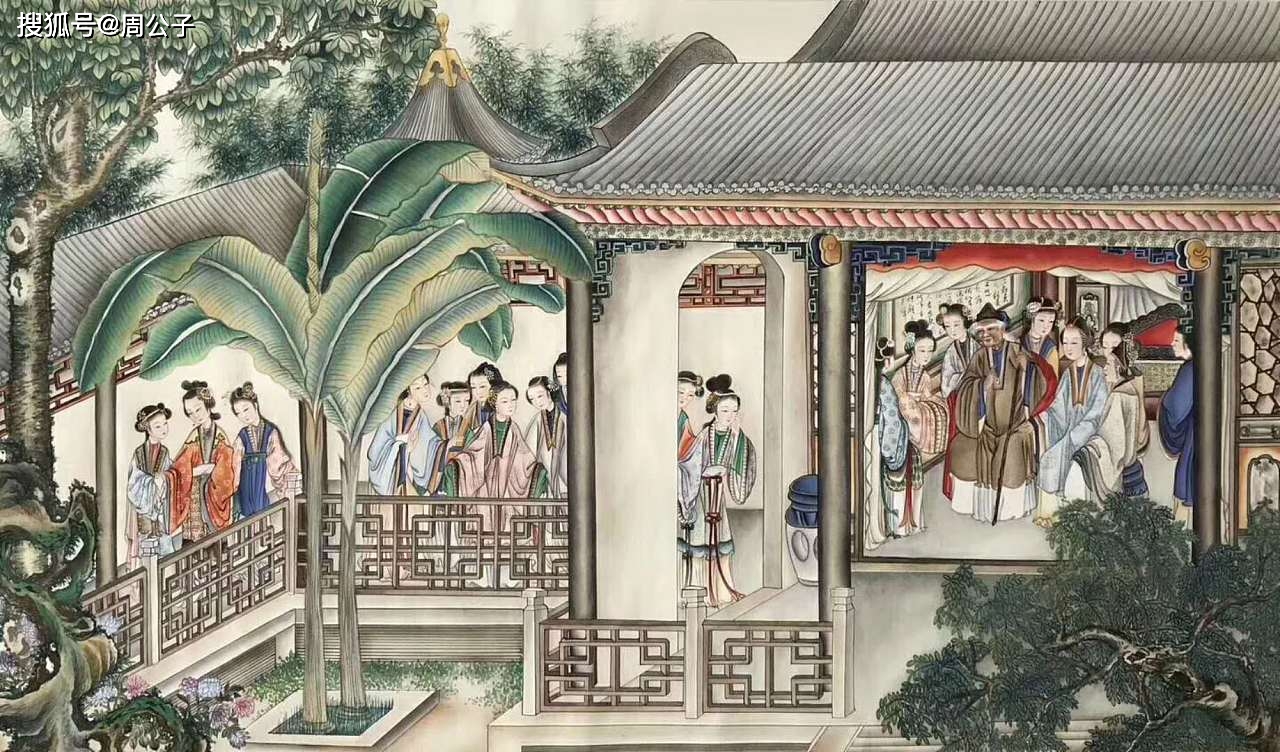 搜狐号@周公子